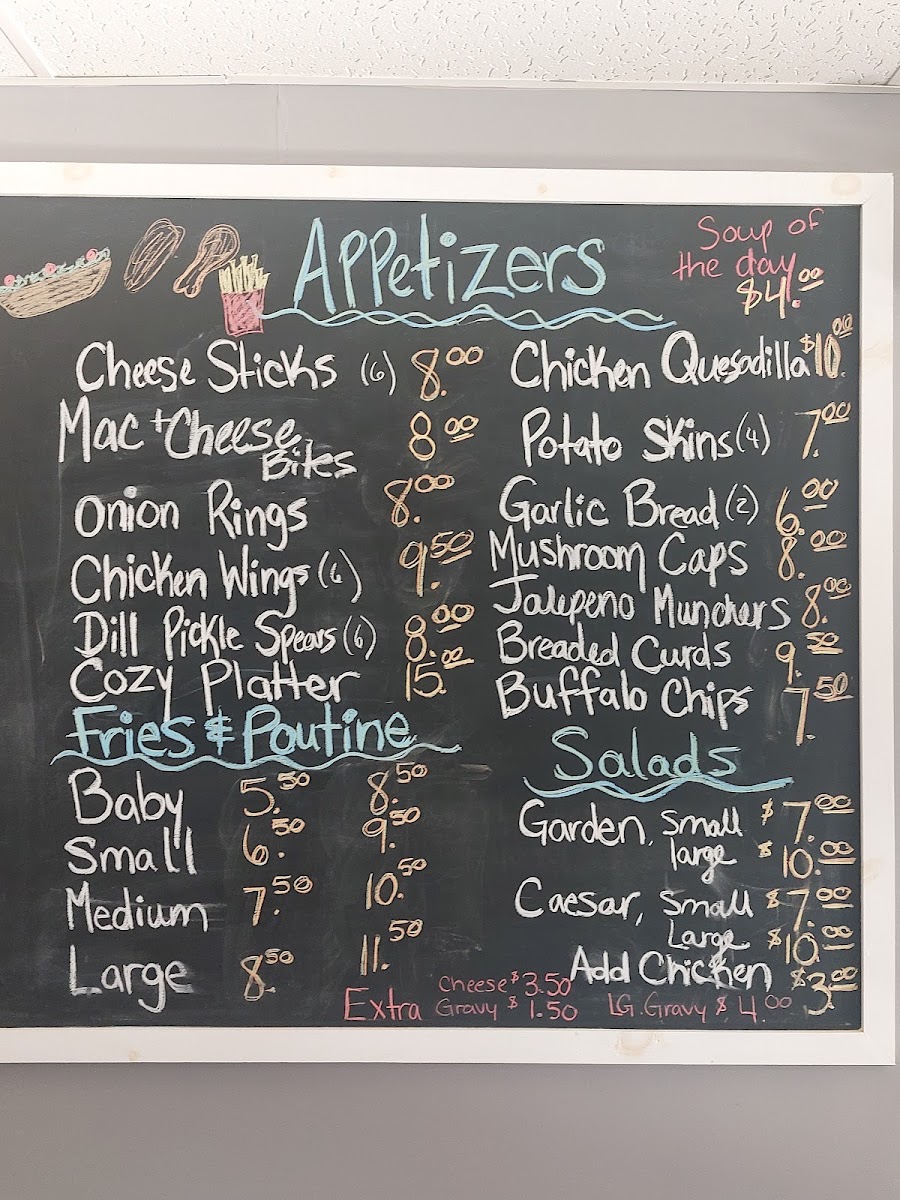 Appetizers
Soup of
the day
$4.00
Cheese Sticks (6) 8.00
Mac + Cheese
Bites 8.00
Onion Rings 8.00
Chicken Wings (6) 9.50
Dill Pickle Spears (6) 8.00
Cozy Platter 15.00
Chicken Quesadilla $10.00
Potato Skins (4) 7.00
Garlic Bread (2) 6.00
Mushroom Caps 8.00
Jalepeno Munchers 8.00
Breaded Curds 9.50
Buffalo Chips 7.50
Fries & Poutine
Baby 5.50 8.50
Small 6.50 9.50
Medium 7.50 10.50
Large 8.50 11.50
Salads
Garden, Small $7.00
large $10.00
Caesar, Small $7.00
Large $10.00
Add Chicken $3.00
Extra Cheese $3.50
Gravy $1.50 LG. Gravy $4.00